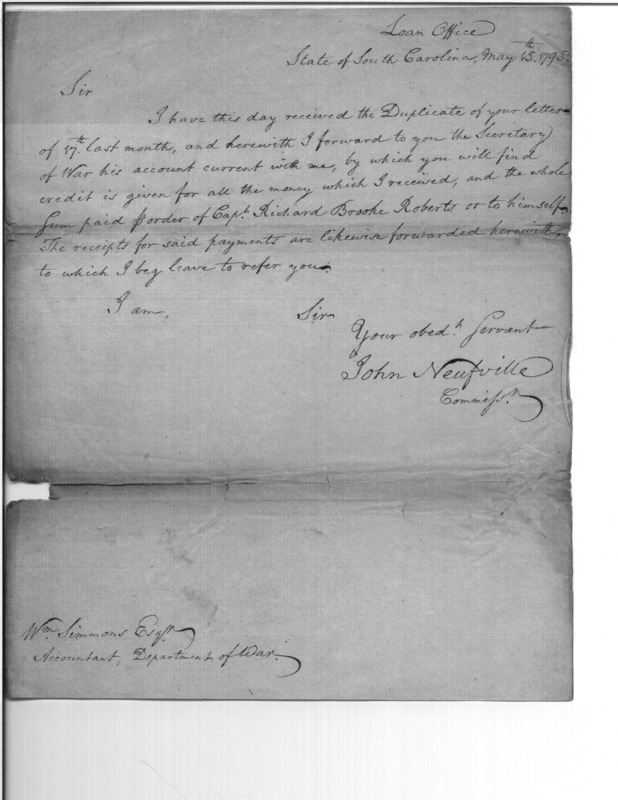 Loan Office
State of South Carolina, May 15th. 1795.
Sir
I have this day received the Duplicate of your letter
of 17th. last month, and herewith I forward to you the Secretary
of War his account current with me, by which you will find
credit is given for all the money which I received, and the whole
Sum paid ⅌ order of Capt. Richard Brooke Roberts or to himself.
The receipts for said payments are likewise forwarded herewith,
to which I beg leave to refer you.
I am, Sir
Your obedt. Servant
John Neufville
Commissr.
Wm. Simmons Esqr.
Accountant, Department of War.